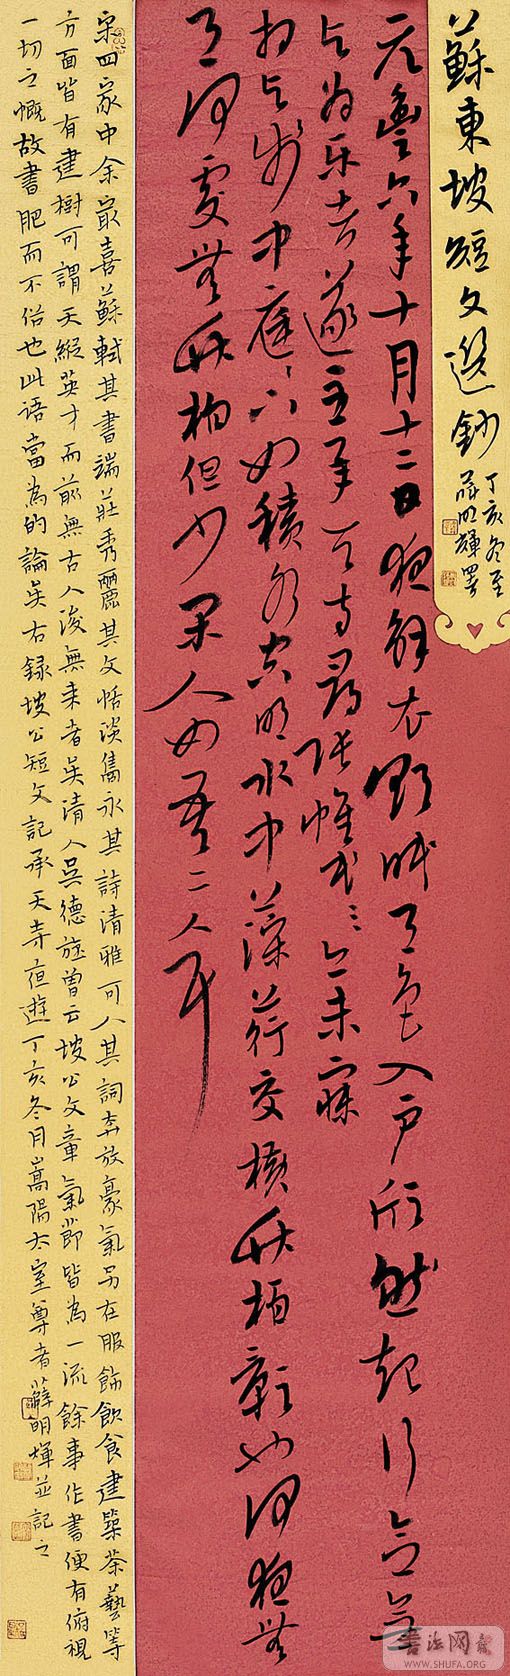 蘇東坡短文選鈔
丁亥冬至
薛明輝署
元豐六年十月十二日夜解衣欲睡月色入戶欣然起行念無
与為乐者遂至承天寺尋張懷民〻亦未寢
相与步中庭〻下如積水空明水中藻荇交橫竹柏影也何夜無
月何處無竹柏但少閑人如吾二人耳
宋四家中余最喜蘇軾其書端莊秀麗其文恬淡雋永其詩清雅可人其詞奔放豪氣另在服飾飲食建築茶藝等
方面皆有建樹可謂天縱英才而前無古人後無來者矣清人吳德旋曾云坡公文章氣節皆為一流餘事作書便有俯視
一切之慨故書肥而不俗也此語當為的論矣右録坡公短文記承天寺夜遊丁亥冬月嵩陽太室尊者薛明輝並記之
WWW.SHUFA.ORG